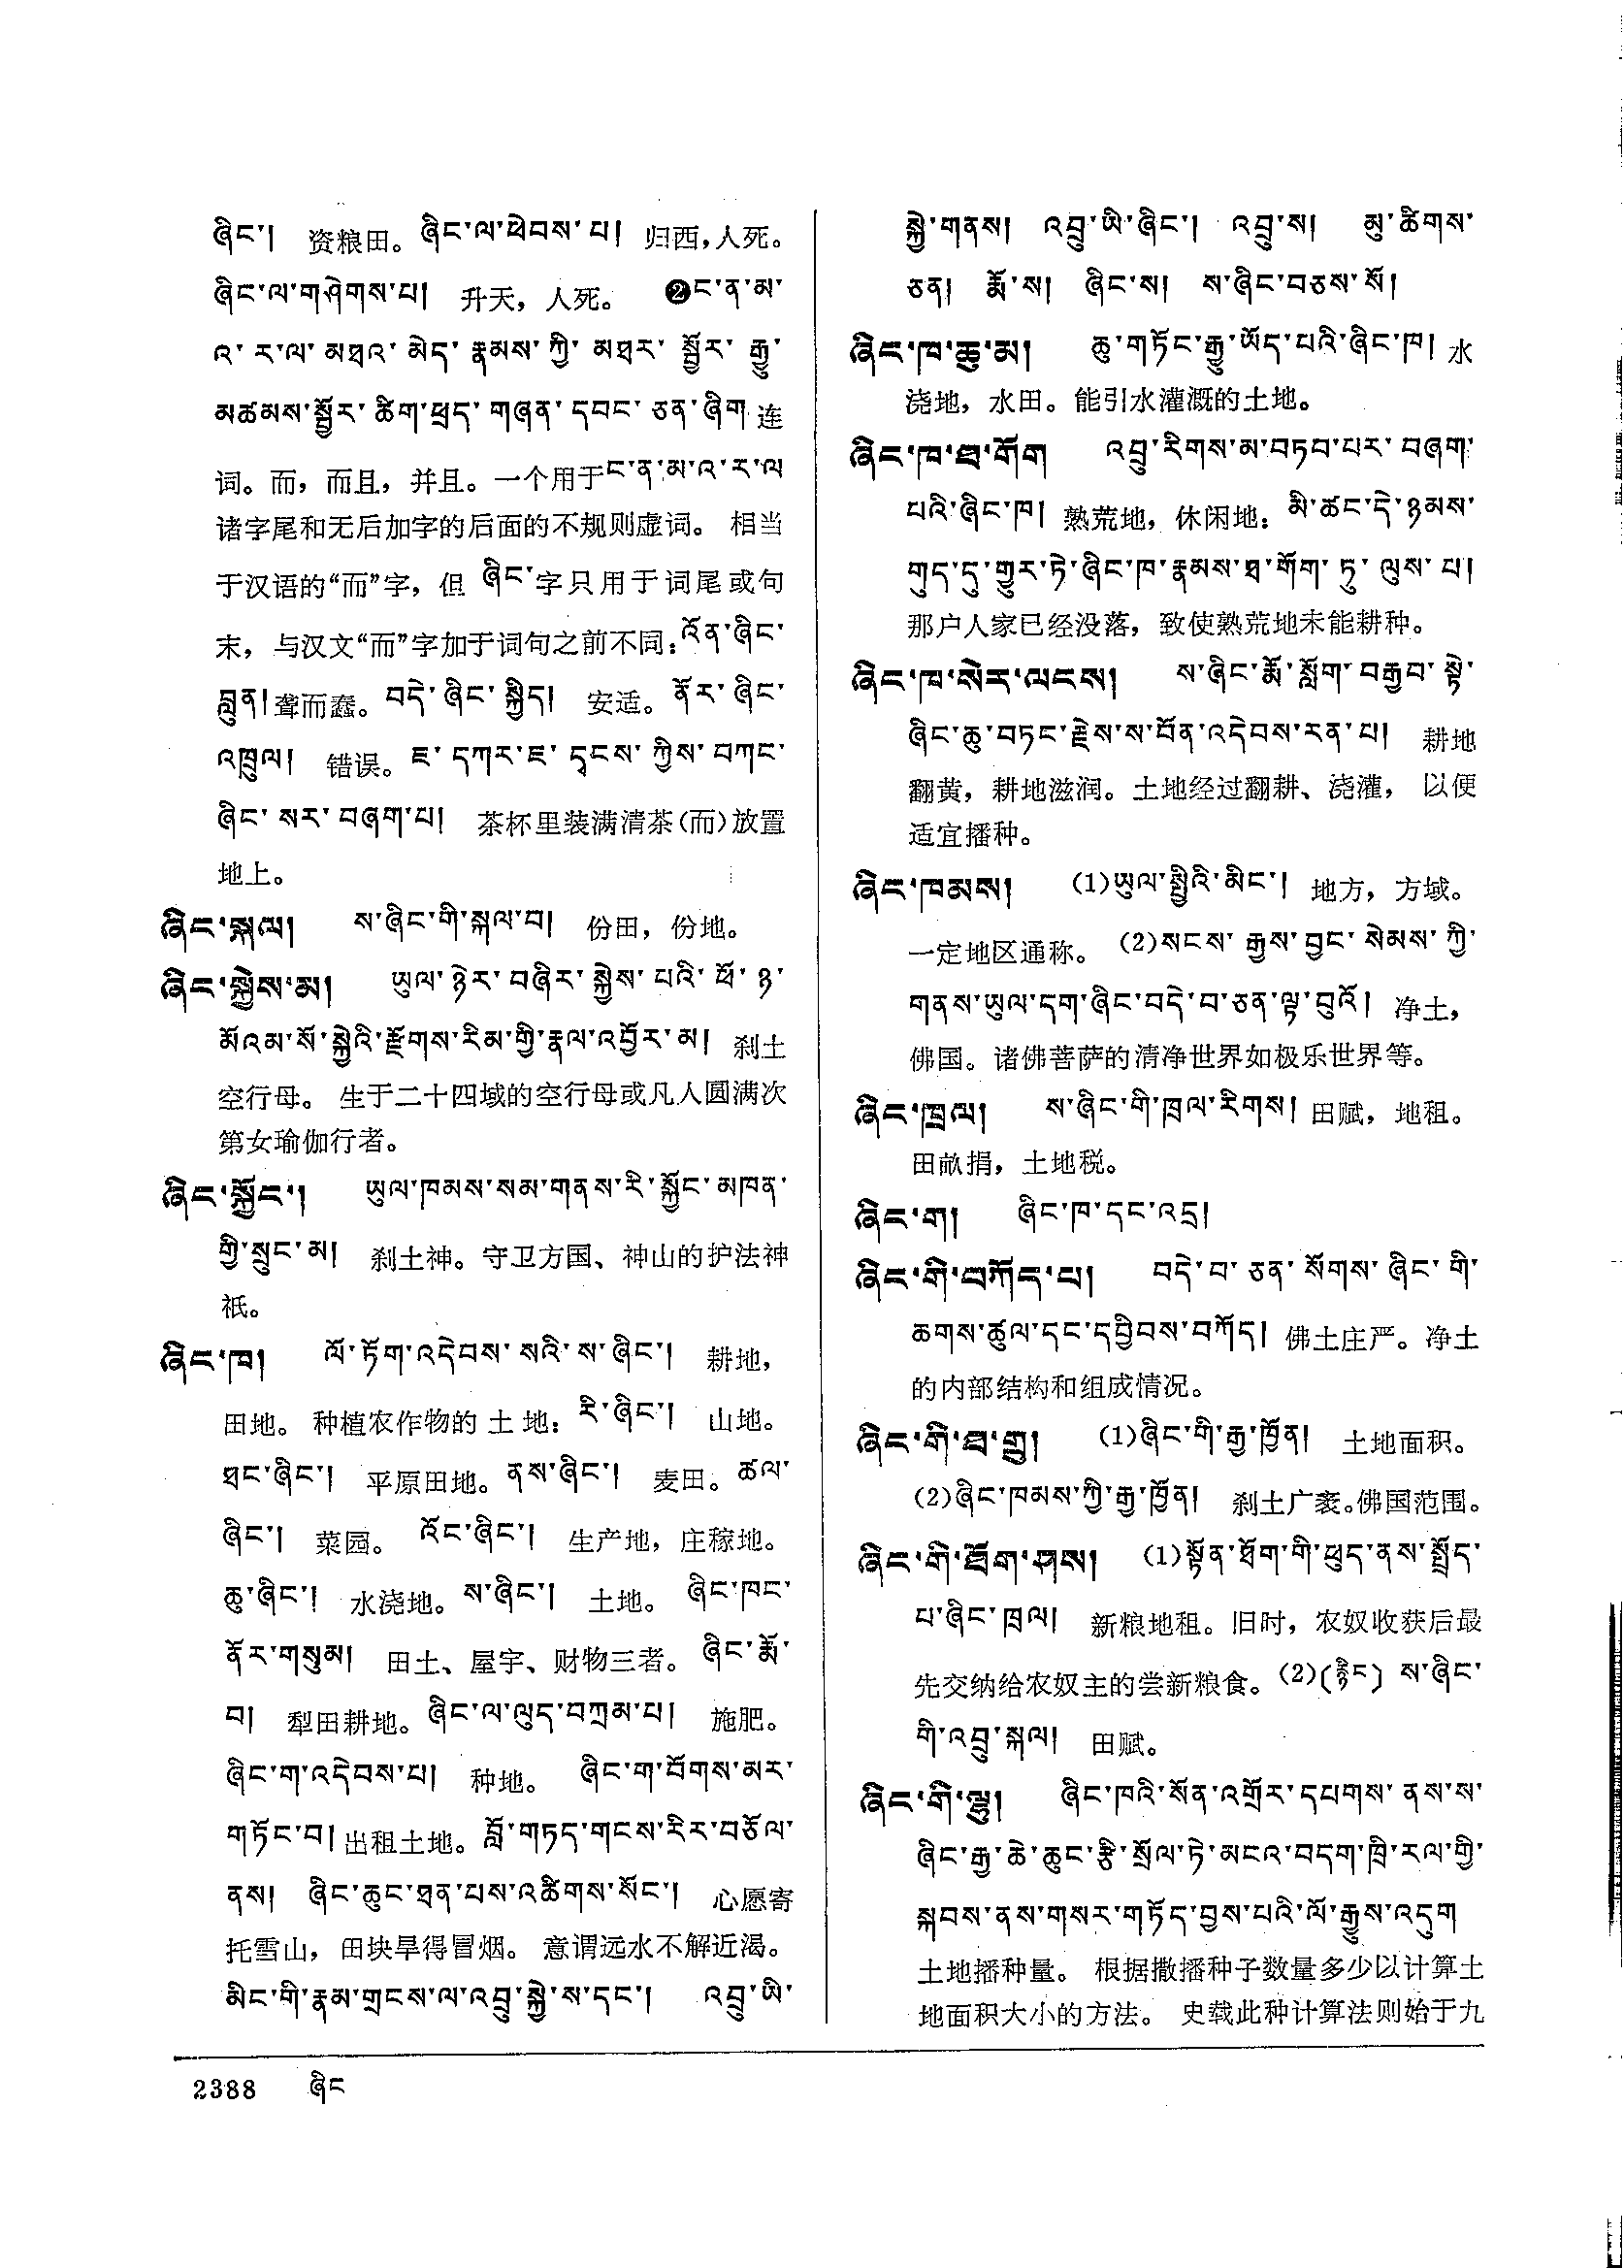 ཞིང་། 资粮田。ཞིང་ལ་ཕེབས་པ། 归西,人死。
ཞིང་ལ་གཤེགས་པ། 升天，人死。 ❷ང་ན་མ་
འ་ར་ལ་མཐའ་མེད་རྣམས་ཀྱི་མཐར་སྦྱོར་རྒྱུ་
མཚམས་སྦྱོར་ཚིག་ཕྲད་གཞན་དབང་ཅན་ཞིག 连
词。而，而且，并且。一个用于ང་ན་མ་འ་ར་ལ
诸字尾和无后加字的后面的不规则虚词。 相当
于汉语的“而”字，但 ཞིང་字只用于词尾或句
末，与汉文“而”字加于词句之前不同:འོན་ཞིང་
བླུན། 聋而蠢。བདེ་ཞིང་སྐྱིད། 安适。ནོར་ཞིང་
འཁྲུལ། 错误。ཇ་དཀར་ཇ་དྭངས་ཀྱིས་བཀང་
ཞིང་སར་བཞག་པ། 茶杯里装满清茶(而)放置
地上。
ཞིང་སྐལ། ས་ཞིང་གི་སྐལ་བ། 份田，份地。
ཞིང་སྐྱེས་མ། ཡུལ་ཉེར་བཞིར་སྐྱེས་པའི་ཕོ་ཉ་
མོའམ་སོ་སྐྱེའི་རྫོགས་རིམ་གྱི་རྣལ་འབྱོར་མ། 刹土
空行母。 生于二十四域的空行母或凡人圆满次
第女瑜伽行者。
ཞིང་སྐྱོང་། ཡུལ་ཁམས་སམ་གནས་རི་སྐྱོང་མཁན་
གྱི་སྲུང་མ། 刹土神。守卫方国、神山的护法神
祇。
ཞིང་ཁ། ལོ་ཏོག་འདེབས་སའི་ས་ཞིང་། 耕地，
田地。 种植农作物的土地：རི་ཞིང་། 山地。
ཐང་ཞིང་། 平原田地。ནས་ཞིང་། 麦田。ཚལ་
ཞིང་། 菜园。 འོང་ཞིང་། 生产地，庄稼地。
ཆུ་ཞིང་། 水浇地。ས་ཞིང་། 土地。 ཞིང་ཁང་
ནོར་གསུམ། 田土、屋宇、财物三者。 ཞིང་རྨོ་
བ། 犁田耕地。ཞིང་ལ་ལུད་བཀྲམ་པ། 施肥。
ཞིང་ག་འདེབས་པ། 种地。 ཞིང་ག་བོགས་མར་
གཏོང་བ། 出租土地。བློ་གཏད་གངས་རིར་བཅོལ་
ནས། ཞིང་ཆུང་ཐན་པས་འཚིགས་སོང་། 心愿寄
托雪山，田块旱得冒烟。 意谓远水不解近渴。
མིང་གི་རྣམ་གྲངས་ལ་འབྲུ་སྐྱེ་ས་དང་། འབྲུ་ཡི་
སྐྱེ་གནས། འབྲུ་ཡི་ཞིང་། འབྲུ་ས། མུ་ཚིགས་
ཅན། རྨོ་ས། ཞིང་ས། ས་ཞིང་བཅས་སོ།
ཞིང་ཁ་ཆུ་མ། ཆུ་གཏོང་རྒྱུ་ཡོད་པའི་ཞིང་ཁ། 水
浇地，水田。能引水灌溉的土地。
ཞིང་ཁ་ཐ་གོག འབྲུ་རིགས་མ་བཏབ་པར་བཞག་
པའི་ཞིང་ཁ། 熟荒地，休闲地：མི་ཚང་དེ་ཉམས་
གུད་དུ་གྱུར་ཏེ་ཞིང་ཁ་རྣམས་ཐ་གོག་ཏུ་ལུས་པ།
那户人家已经没落，致使熟荒地未能耕种。
ཞིང་ཁ་སེར་ལངས། ས་ཞིང་རྨོ་སློག་བརྒྱབ་སྟེ་
ཞིང་ཆུ་བཏང་རྗེས་ས་བོན་འདེབས་རན་པ། 耕地
翻黄，耕地滋润。土地经过翻耕、浇灌， 以便
适宜播种。
ཞིང་ཁམས། (1)ཡུལ་སྤྱིའི་མིང་། 地方，方域。
一定地区通称。 (2)སངས་རྒྱས་བྱང་སེམས་ཀྱི་
གནས་ཡུལ་དག་ཞིང་བདེ་བ་ཅན་ལྟ་བུའོ། 净土，
佛国。诸佛菩萨的清净世界如极乐世界等。
ཞིང་ཁྲལ། ས་ཞིང་གི་ཁྲལ་རིགས། 田赋，地租。
田畝捐，土地税。
ཞིང་ག། ཞིང་ཁ་དང་འདྲ།
ཞིང་གི་བཀོད་པ། བདེ་བ་ཅན་སོགས་ཞིང་གི་
ཆགས་ཚུལ་དང་དབྱིབས་བཀོད། 佛土庄严。净土
的内部结构和组成情况。
ཞིང་གི་ཐ་གྲུ། (1)ཞིང་གི་རྒྱ་ཁྱོན། 土地面积。
(2)ཞིང་ཁམས་ཀྱི་རྒྱ་ཁྱོན། 刹土广袤。佛国范围。
ཞིང་གི་ཐོག་ཤས། (1)སྟོན་ཐོག་གི་ཕུད་ནས་སྤྲོད་
པ་ཞིང་ཁྲལ། 新粮地租。旧时，农奴收获后最
先交纳给农奴主的尝新粮食。(2)(རྙིང) ས་ཞིང་
གི་འབྲུ་སྐལ། 田赋。
ཞིང་གི་ལྷུ། ཞིང་ཁའི་སོན་འགྲོར་དཔགས་ནས་ས་
ཞིང་རྒྱ་ཆེ་ཆུང་རྩི་སྲོལ་ཏེ་མངའ་བདག་ཁྲི་རལ་གྱི་
སྐབས་ནས་གསར་གཏོད་བྱས་པའི་ལོ་རྒྱུས་འདུག
土地播种量。 根据撒播种子数量多少以计算土
地面积大小的方法。 史载此种计算法则始于九
2388 ཞིང